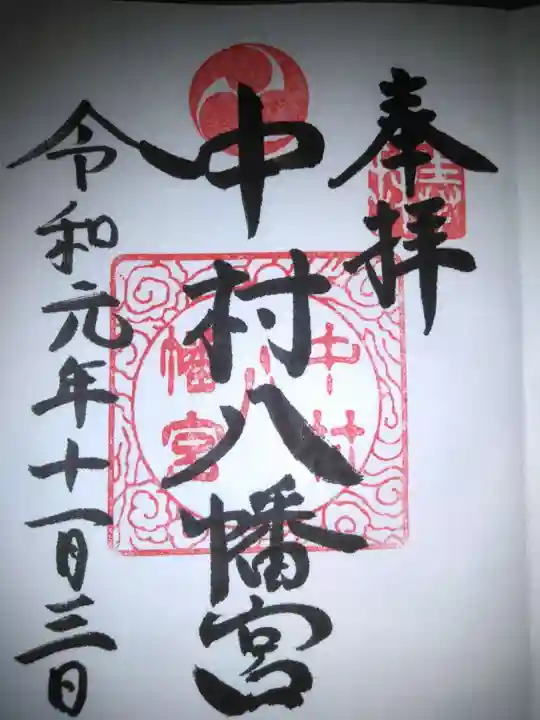 奉拝
中村八幡宮
中村八幡宮
令和元年十一月三日